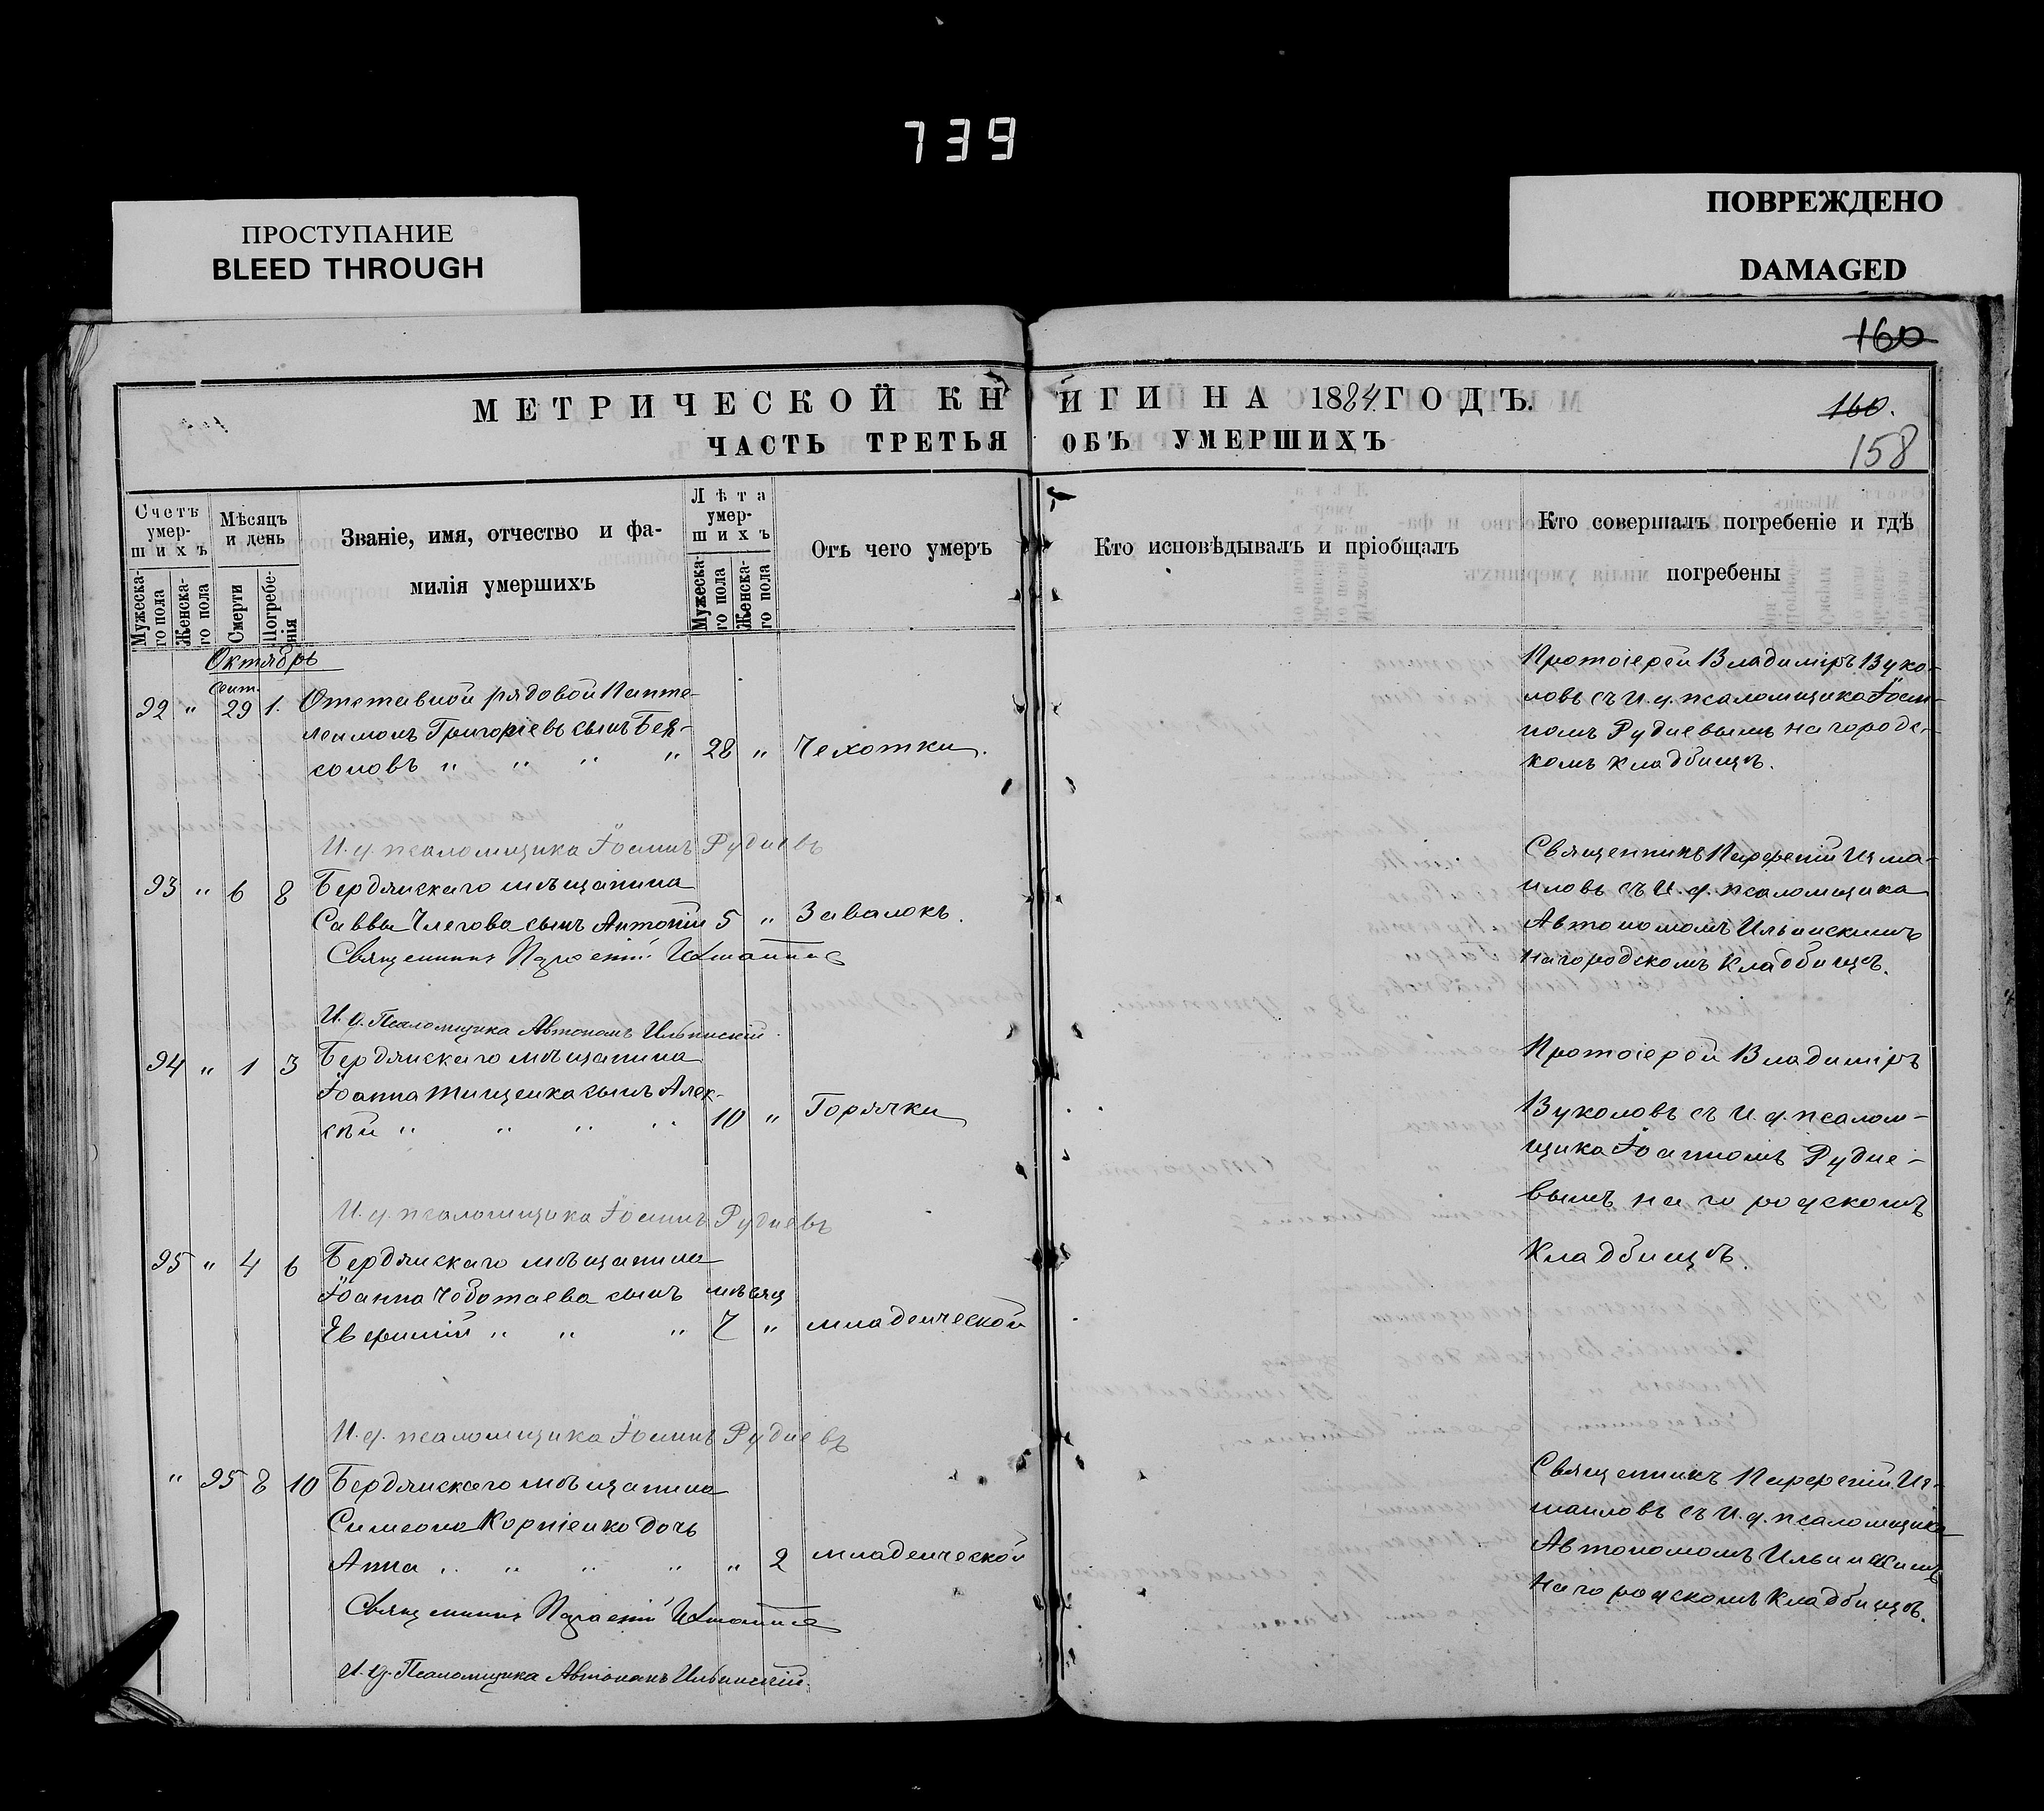 739
ПРОСТУПАНИЕ
BLEED THROUGH
ПОВРЕЖДЕНО
DAMAGED
160
МЕТРИЧЕСКОЙ КНИГИ НА 1884 ГОДЪ.
160.
ЧАСТЬ ТРЕТЬЯ ОБЪ УМЕРШИХЪ
158
Счетъ умер-шихъ
Мужеска-го пола
Женска-го пола
Мѣсяцъ и день
Смерти
Погребе-нія
Званіе, имя, отчество и фа-
милія умершихъ
Лѣта умер-шихъ
Мужеска-го пола
Женска-го пола
Отъ чего умеръ
Кто исповѣдывалъ и пріобщалъ
Кто совершалъ погребеніе и гдѣ
погребены
Октябрь
Сент.
92 " 29 1. Отставной рядовой Панте-
леимонъ Григоріевъ сынъ
соновъ " " " " 28 " Чехотки.
Протоіерей Владиміръ Вуко-
ловъ съ И. д. псаломщика Іоан-
номъ Рудневымъ на городс-
комъ кладбищѣ.
И. д. псаломщика Іоаннъ Рудневъ
93 " 6 8 Бердянскаго мѣщанина
Саввы сынъ Антоній 5 " Завалокъ.
Священникъ Парѳеній
И. д. Псаломщика Автономъ Ильинскій.
Священникъ Парфеній Изма-
иловъ съ И. д. псаломщика
Автономомъ Ильинскимъ
на городскомъ кладбищѣ.
94 " 1 3 Бердянскаго мѣщанина
Іоанна Тищенка сынъ Алек-
сѣй " " " " 10 " Горячки
И. д. псаломщика Іоаннъ Рудневъ
Протоіерей Владиміръ
Вуколовъ съ И. д. псалом-
щика Іоанномъ Рудне-
вымъ на городскомъ
Кладбищѣ.
95 " 4 6 Бердянскаго мѣщанина
Іоанна Чоботаева сынъ мѣсяц
Евфимій " " " 7 " младенческой
И. д. псаломщика Іоаннъ Рудневъ
" 95 8 10 Бердянскаго мѣщанина
Симеона Корніенко дочь
Анна " " " " " 2 младенческой
Священникъ Парѳеній
И. д. Псаломщика Автономъ Ильинскій.
Священникъ Парфеній Из-
маиловъ съ И. д. псаломщика
Автономомъ Ильинскимъ
на городскомъ Кладбищѣ.